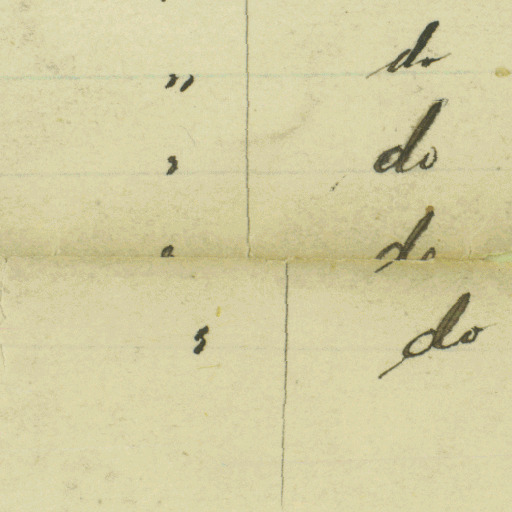 " do
" do
" do
" do